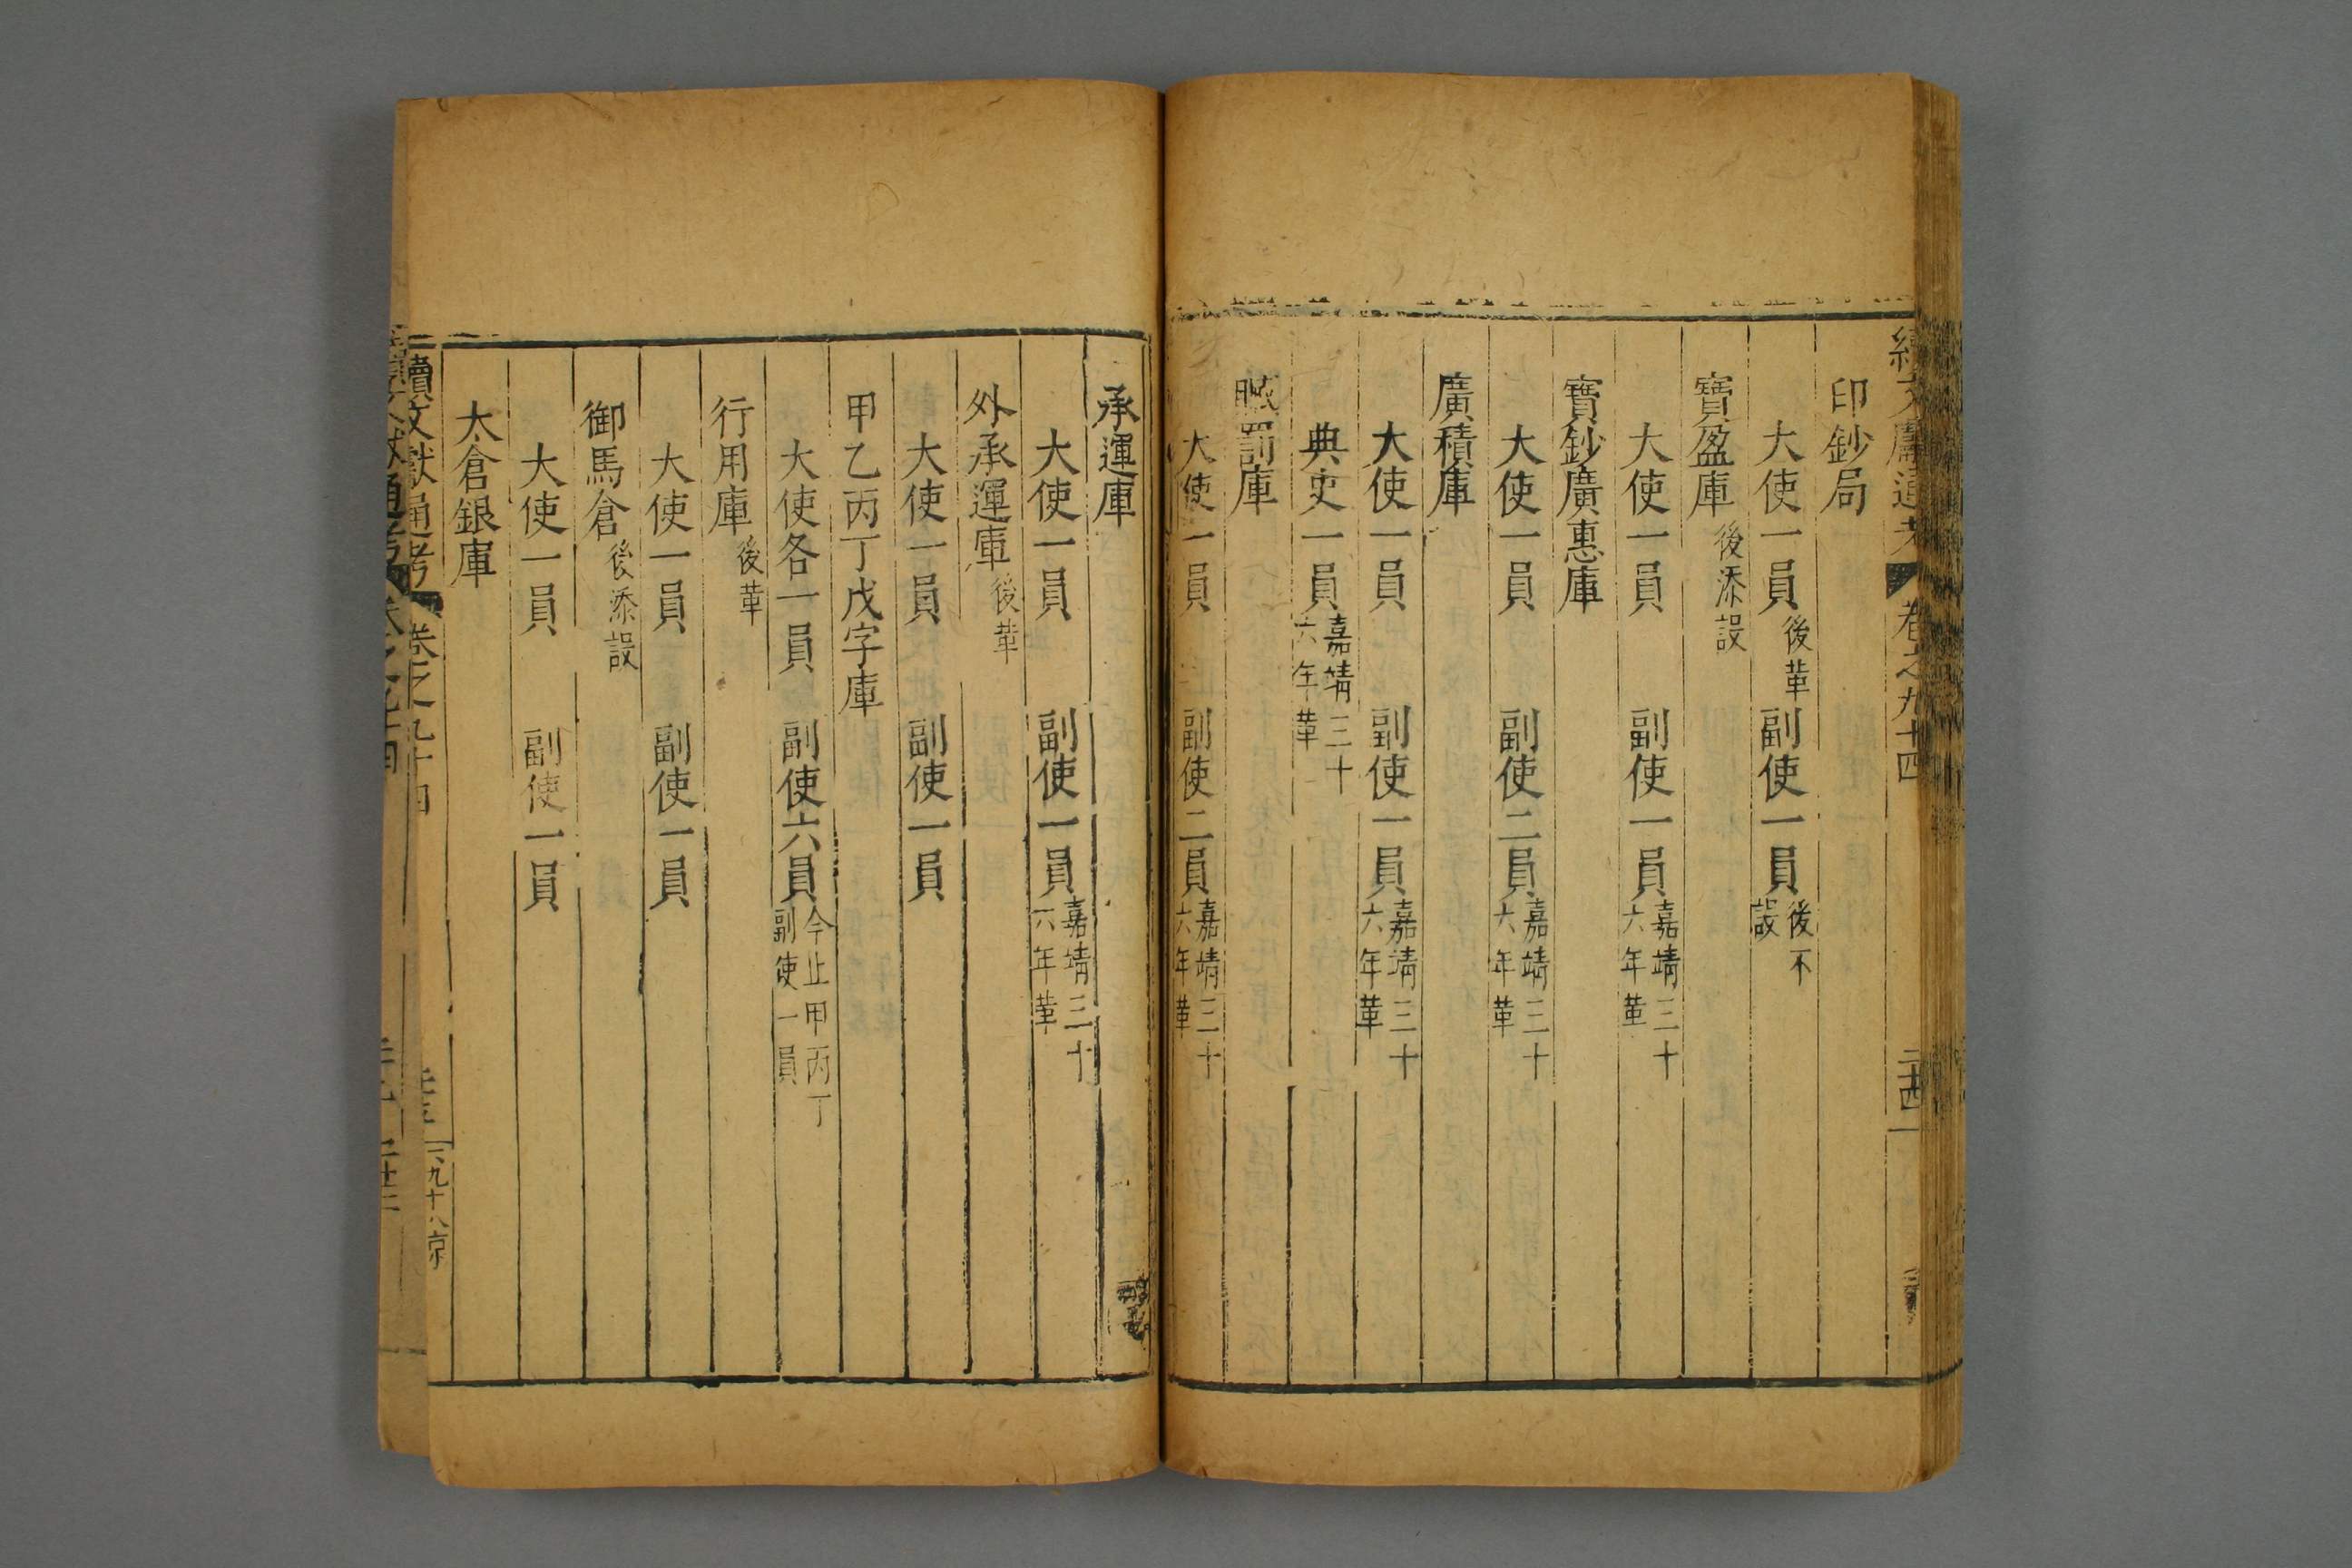 續文獻通考 卷之九十四 二十四
印鈔局
大使一員後革 副使一員後不設
寶盈庫後添設
大使一員 副使一員嘉靖三十六年革
寶鈔廣惠庫
大使一員 副使二員嘉靖三十六年革
廣積庫
大使一員 副使一員嘉靖三十六年革
典史一員嘉靖三十六年革
贓罰庫
大使一員 副使二員嘉靖三十六年革
承運庫
大使一員 副使一員嘉靖三十六年革
外承運庫後革
大使一員 副使一員
甲乙丙丁戊字庫
大使各一員 副使六員今止甲丙丁副使一員
行用庫後革
大使一員 副使一員
御馬倉後添設
大使一員 副使一員
太倉銀庫
續文獻通考 卷之九十四